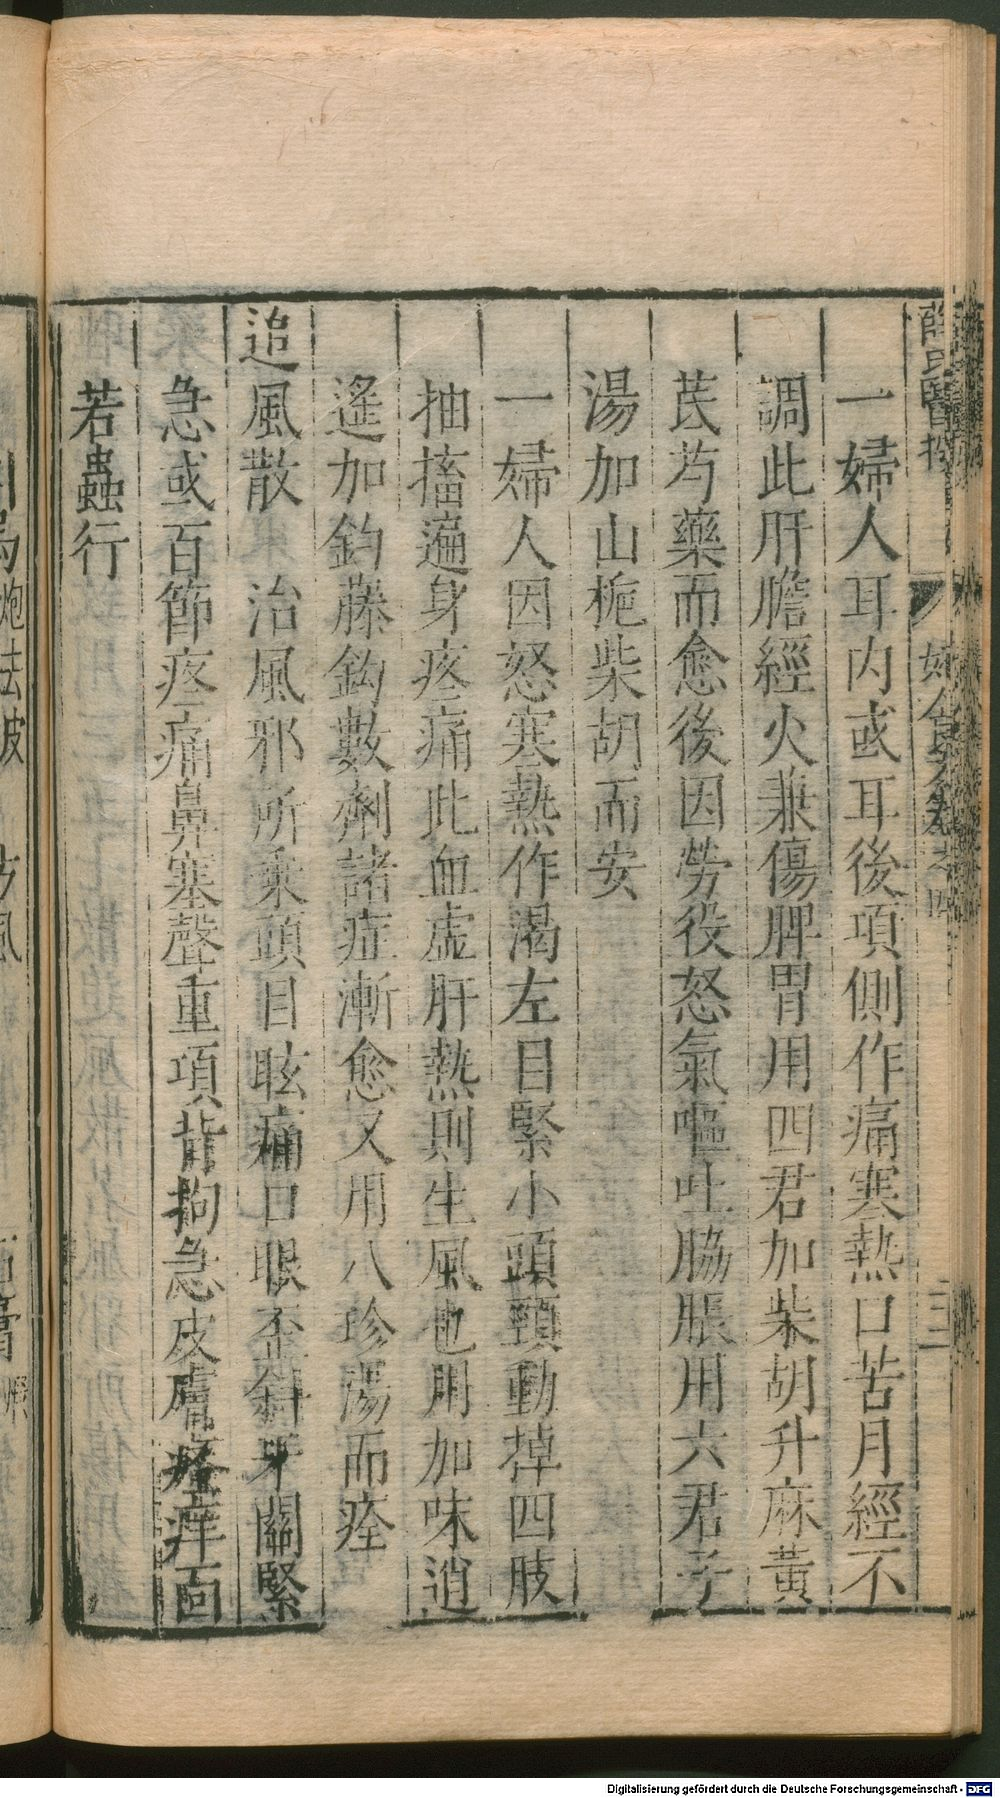 一婦人耳内或耳後項側作痛寒熱口苦月經不
調此肝膽經火兼傷脾胃用四君加柴胡升麻黃
芪芍藥而愈後因勞役怒氣嘔吐脇脹用六君子
湯加山梔柴胡而安
一婦人因怒寒熱作渴左目緊小頭頸動掉四肢
抽搐遍身疼痛此血虛肝熱則生風也用加味逍
遙加鈎藤鈎數劑諸症漸愈又用八珍湯而痊
追風散　治風邪所乘頭目眩痛口眼歪斜牙關緊
急或百節疼痛鼻塞聲重項背拘急皮膚瘙痒面
若蟲行
Digitalisierung gefördert durch die Deutsche Forschungsgemeinschaft - DFG